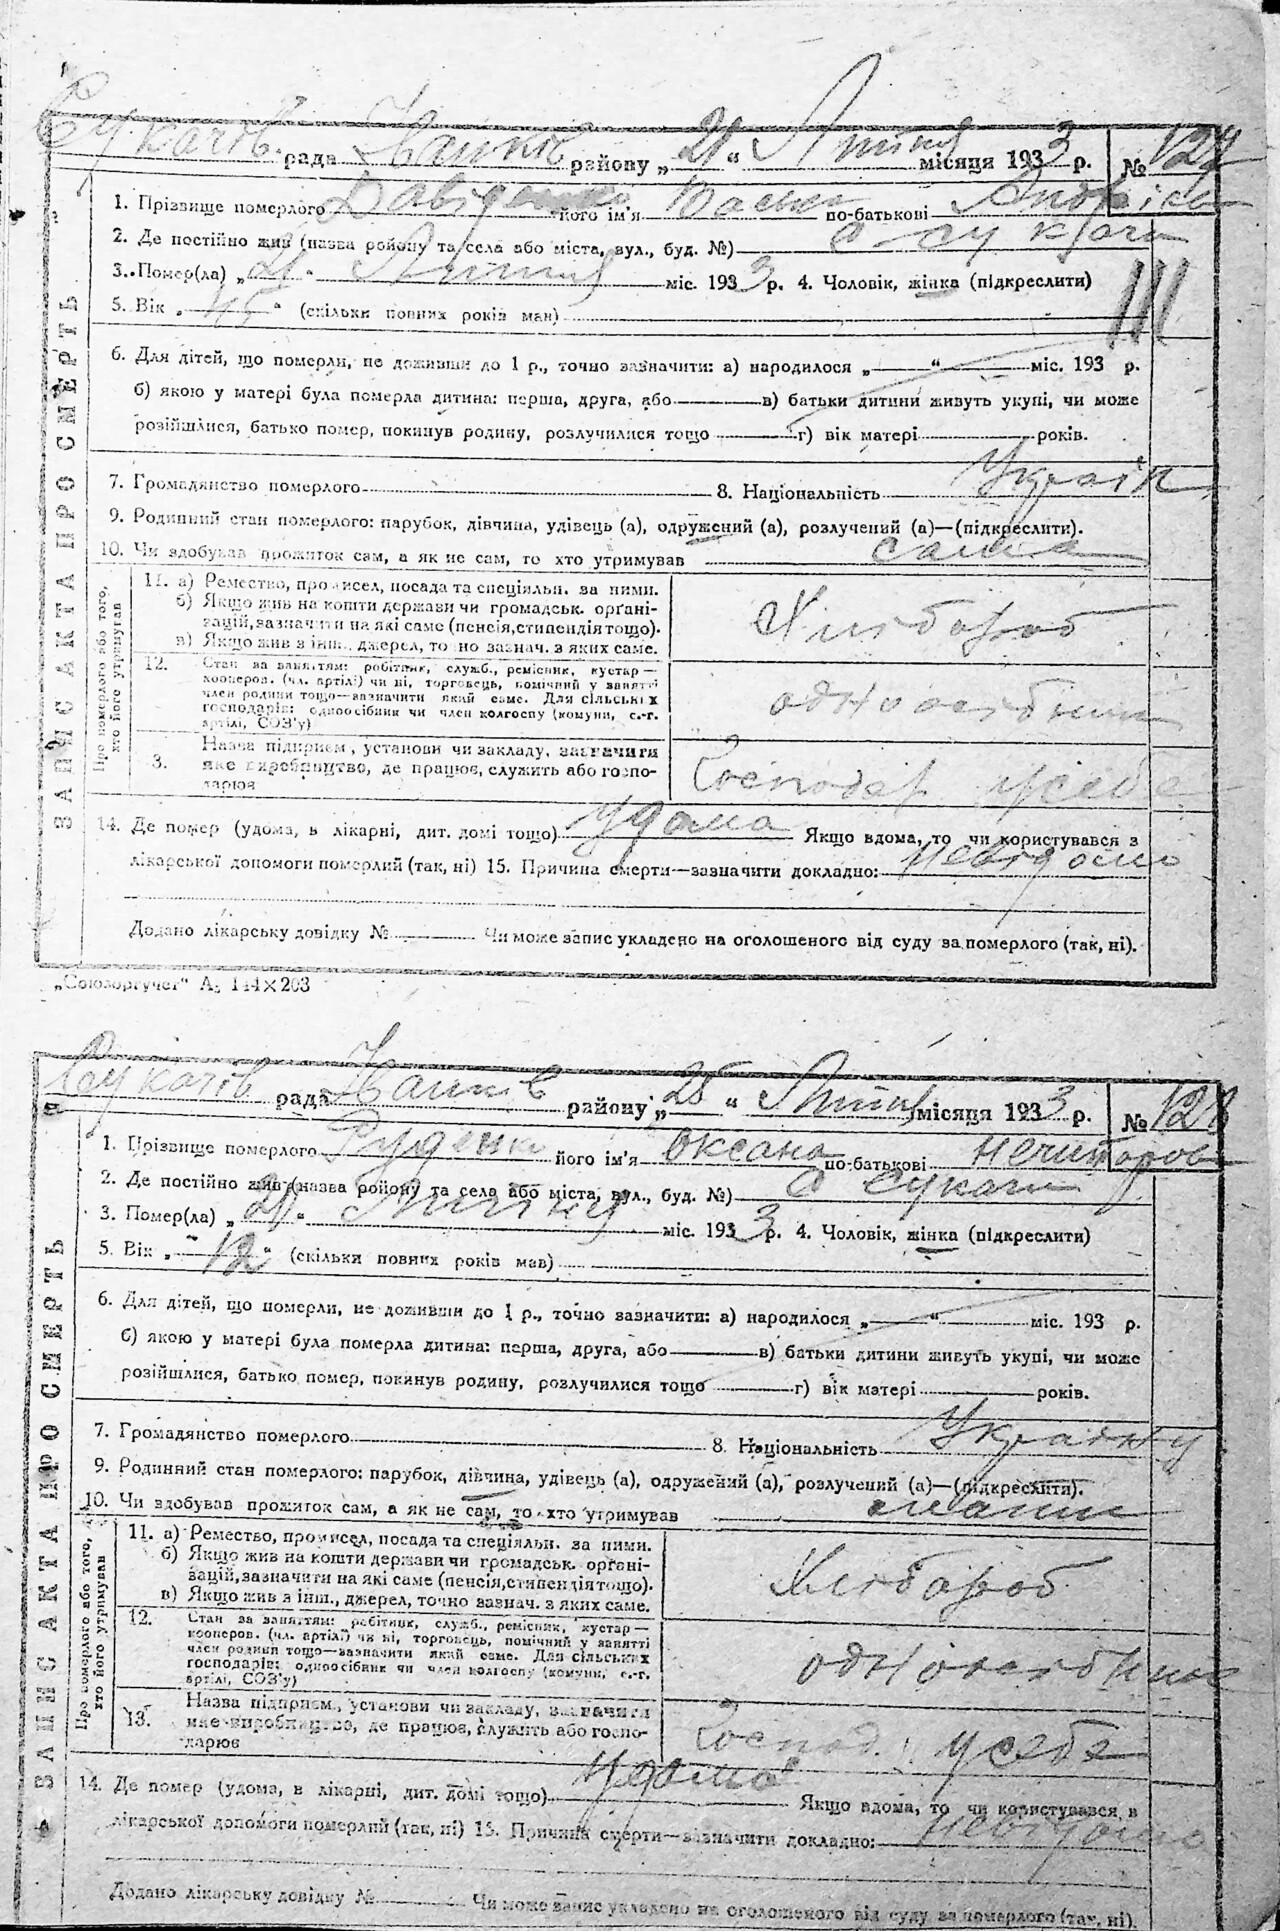 Сукачів. рада Іванків району „21“ Липня місяця 1933 р. № 127
1. Прізвище померлого Давіденко його ім'я по-батькові
2. Де постійно жив (назва району та села або міста, вул., буд. №) с Сукачи
3. Помер(ла) „21“ Липня міс. 1933 р. 4. Чоловік, жінка (підкреслити)
5. Вік „45“ (скільки повних років мав)
6. Для дітей, що померли, не доживши до 1 р., точно зазначити: а) народилося „ “ міс. 193 р.
б) якою у матері була померла дитина: перша, друга, або в) батьки дитини живуть укупі, чи може
розійшлися, батько помер, покинув родину, розлучилися тощо г) вік матері років.
7. Громадянство померлого 8. Національність Україн
9. Родинний стан померлого: парубок, дівчина, удівець (а), одружений (а), розлучений (а)—(підкреслити).
10. Чи здобував прожиток сам, а як не сам, то хто утримував сама
ЗАПИС АКТА ПРО СМЕРТЬ
Про померлого або того, хто його утримував
11. а) Ремество, промисел, посада та спеціяльн. за ними.
б) Якщо жив на кошти держави чи громадськ. орґані-
зацій, зазначити на які саме (пенсія, стипендія тощо).
в) Якщо жив з інш. джерел, точно зазнач. з яких саме.
Хлібороб
12. Стан за заняттям: робітник, служб., ремісник, кустар—
кооперов. (чл. артілі) чи ні, торговець, помічний у занятті
член родини тощо—зазначити який саме. Для сільських
господарів: одноосібник чи член колгоспу (комуни, с.-г.
артілі, СОЗ'у)
одноосібник
13. Назва підприєм., установи чи закладу, зазначити
яке виробництво, де працює, служить або госпо-
дарює
Господар усебе
14. Де помер (удома, в лікарні, дит. домі тощо) удома Якщо вдома, то чи користувався з
лікарської допомоги померлий (так, ні) 15. Причина смерти—зазначити докладно: невідомо
Додано лікарську довідку № Чи може запис укладено на оголошеного від суду за померлого (так, ні).
„Союзоргучет“ А5 144×203
Сукачів рада Іванків району „25“ Липня місяця 1933 р. № 128
1. Прізвище померлого Руденко його ім'я оксана по-батькові нечипоров
2. Де постійно жив (назва району та села або міста, вул., буд. №) с Сукачи
3. Помер(ла) „21“ Липня міс. 1933 р. 4. Чоловік, жінка (підкреслити)
5. Вік „12“ (скільки повних років мав)
6. Для дітей, що померли, не доживши до 1 р., точно зазначити: а) народилося „ “ міс. 193 р.
б) якою у матері була померла дитина: перша, друга, або в) батьки дитини живуть укупі, чи може
розійшлися, батько помер, покинув родину, розлучилися тощо г) вік матері років.
7. Громадянство померлого 8. Національність Україну
9. Родинний стан померлого: парубок, дівчина, удівець (а), одружений (а), розлучений (а)—(підкреслити).
10. Чи здобував прожиток сам, а як не сам, то хто утримував
ЗАПИС АКТА ПРО СМЕРТЬ
Про померлого або того, хто його утримував
11. а) Ремество, промисел, посада та спеціяльн. за ними.
б) Якщо жив на кошти держави чи громадськ. орґані-
зацій, зазначити на які саме (пенсія, стипендія тощо).
в) Якщо жив з інш., джерел, точно зазнач. з яких саме.
Хлібороб
12. Стан за заняттям: робітник, служб., ремісник, кустар—
кооперов. (чл. артілі) чи ні, торговець, помічний у занятті
член родини тощо—зазначити який саме. Для сільських
господарів: одноосібник чи член колгоспу (комуни, с.-г.
артілі, СОЗ'у)
одноосібник
13. Назва підприєм., установи чи закладу, зазначити
яке виробництво, де працює, служить або госпо-
дарює
Господ. усебе
14. Де помер (удома, в лікарні, дит. домі тощо) удома Якщо вдома, то чи користувався з
лікарської допомоги померлий (так, ні) 15. Причина смерти—зазначити докладно: невідомо
Додано лікарську довідку № Чи може запис укладено на оголошеного від суду за померлого (так, ні).